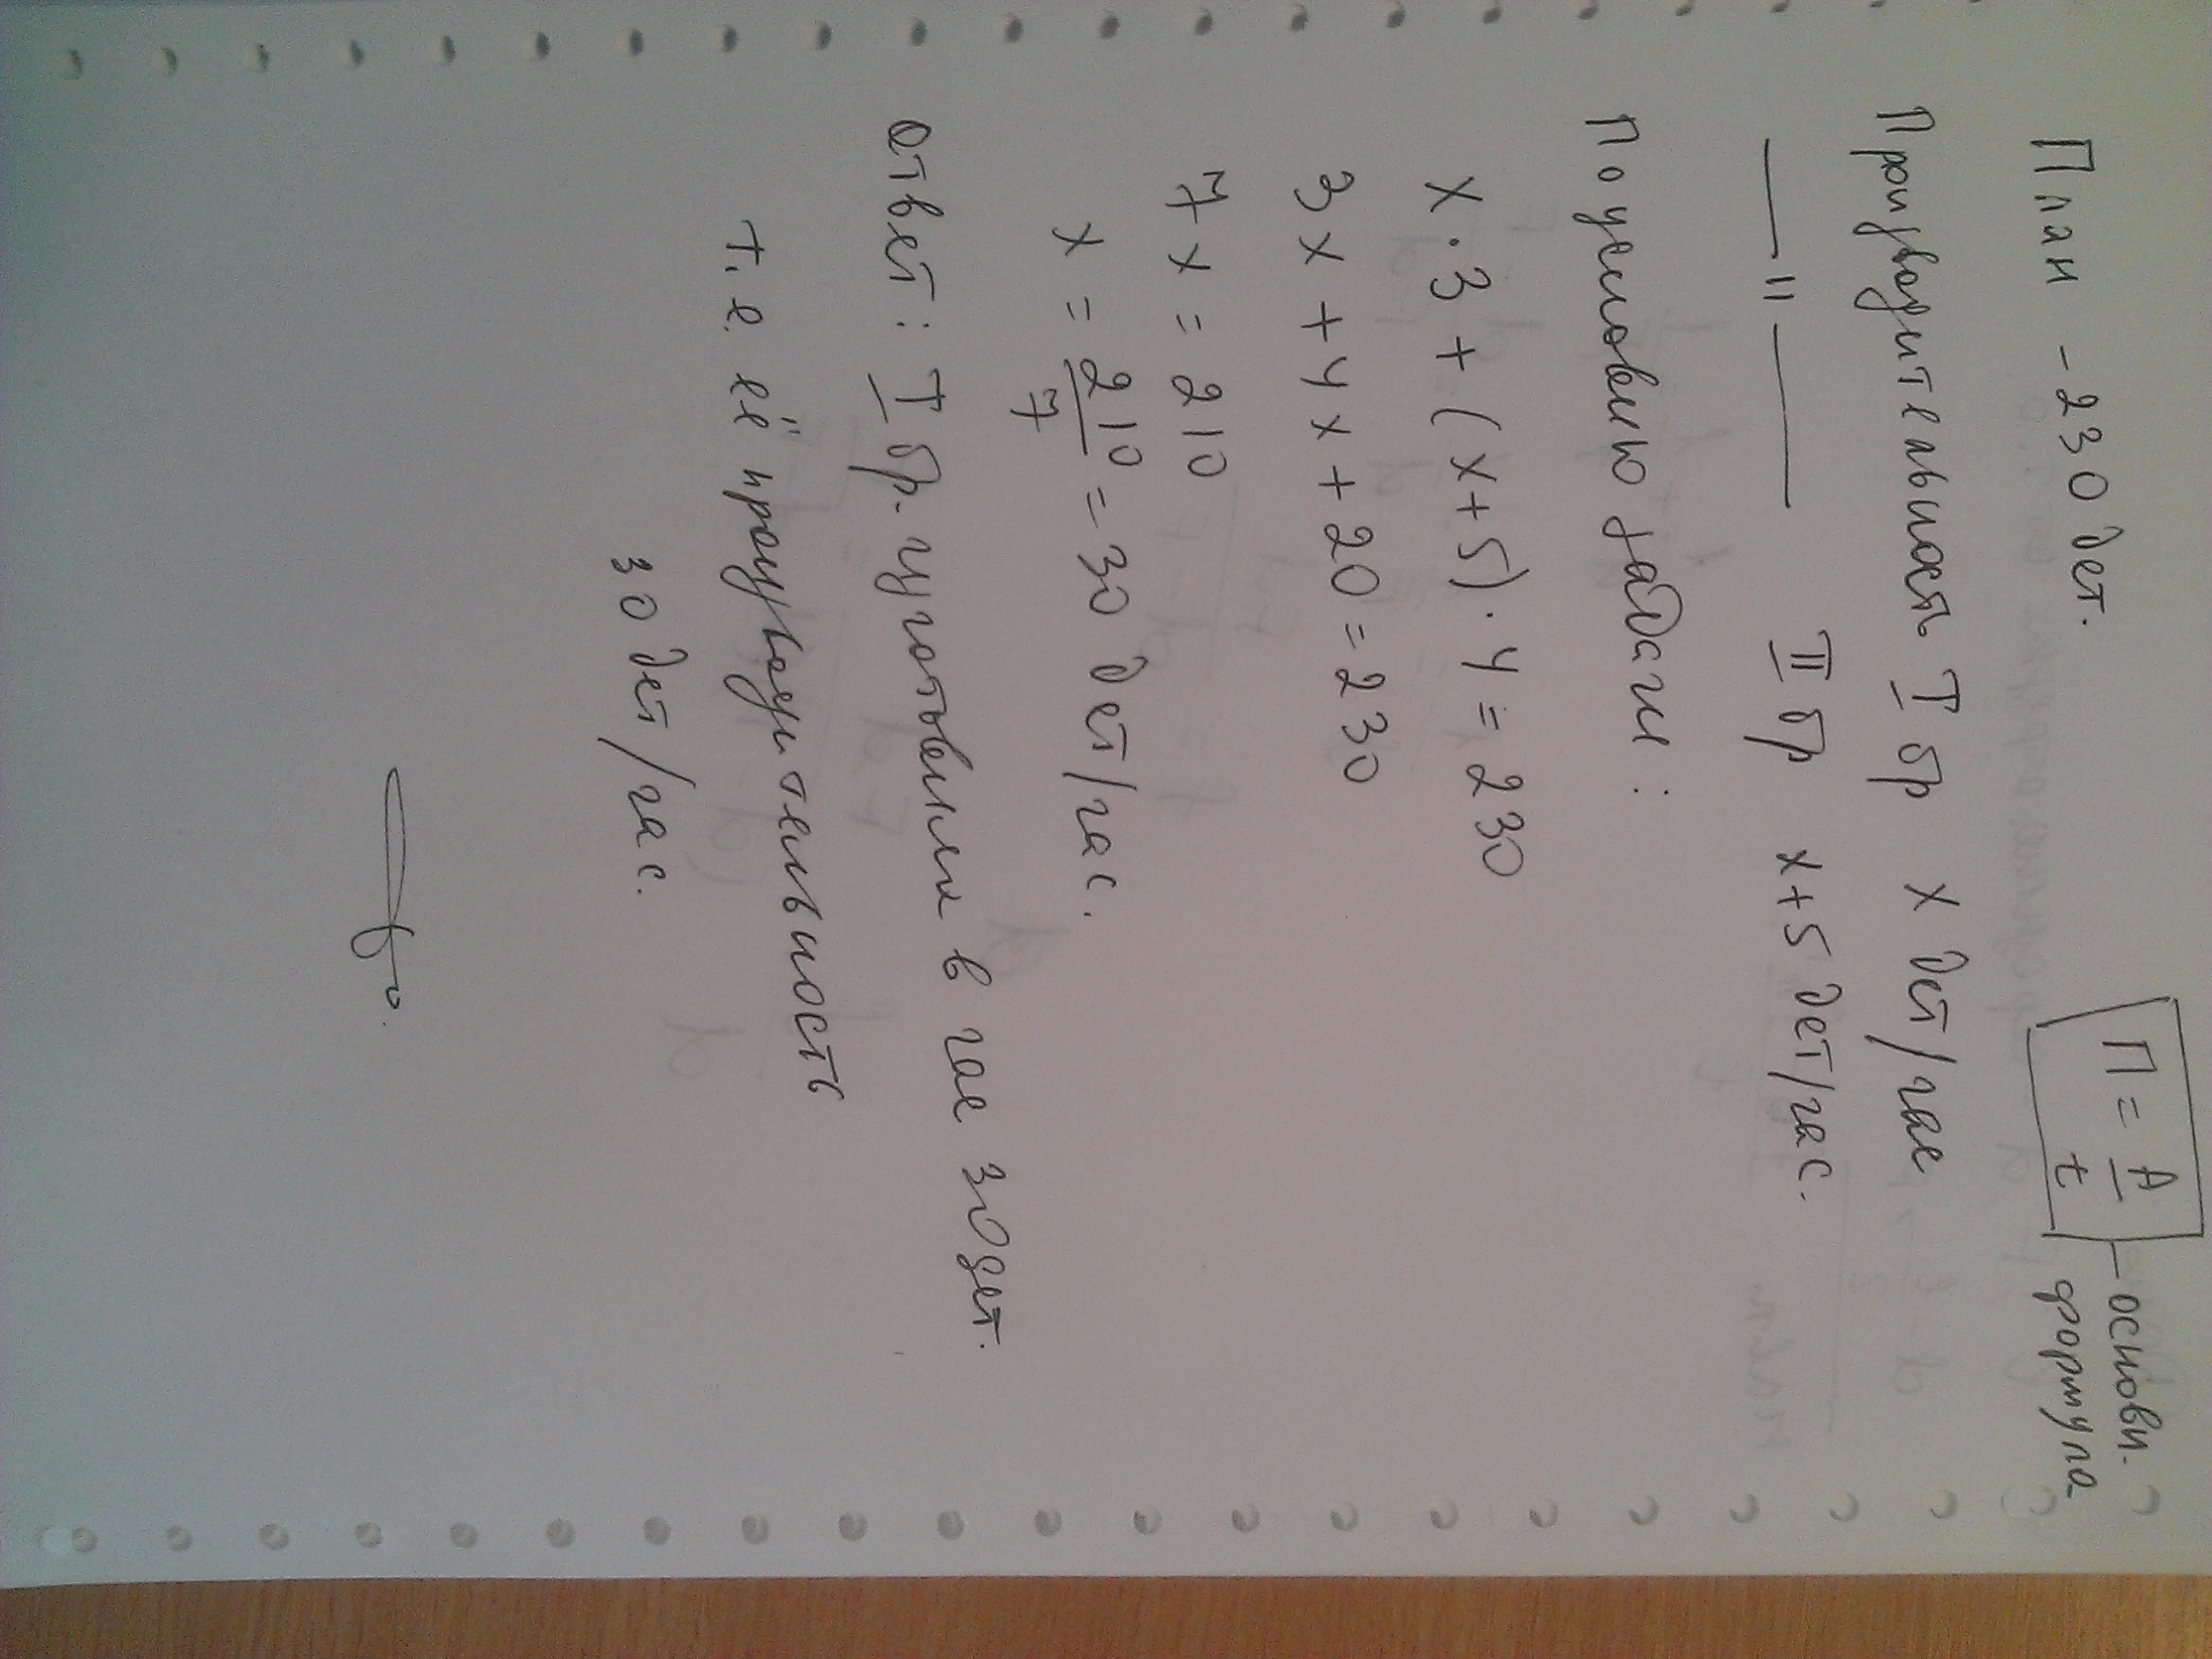 План - 230 дет.
П = A/t - основн. формула
Производительность I бр x дет/час
—— " —— II бр x+5 дет/час.
По условию задачи:
x · 3 + (x+5) · 4 = 230
3x + 4x + 20 = 230
7x = 210
x = 210/7 = 30 дет/час.
Ответ: I бр. изготовили в час 30 дет.
т.е. её производительность
30 дет/час.